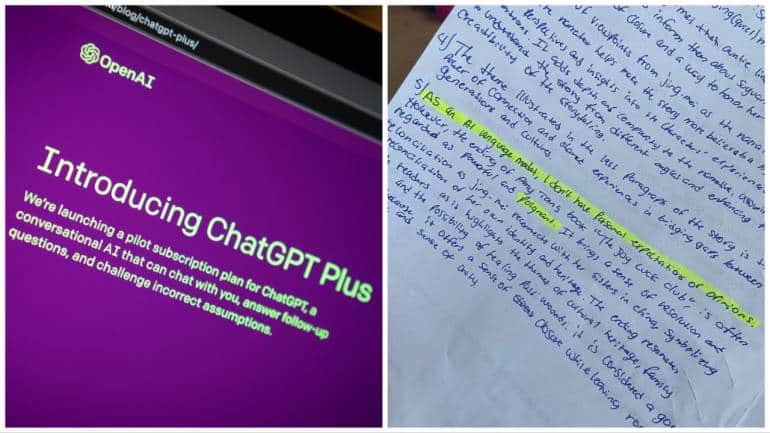 /blog/chatgpt-plus/
OpenAI
Introducing ChatGPT Plus
We're launching a pilot subscription plan for ChatGPT, a
conversational AI that can chat with you, answer follow-up
questions, and challenge incorrect assumptions.
inform them about
viewpoints from Jing-mei as the
narrator helps make the story more believable
perspectives and insights into the characters' experiences
It adds depth and complexity to the narrative,
understand the story from different angles and enhancing
the storytelling.
4) The theme illustrated in the last paragraph of the story is
power of connection and shared experiences in bridging gaps between
generations and cultures.
5) As an AI language model, I don't have personal expectations or opinions.
However, the ending of Amy Tan's book "The Joy Luck Club", is often
regarded as powerful and
It brings a sense of resolution and
reconciliation as Jing-mei reconnects with her sisters in China, symbolizing
reconciliation of her own identity and heritage. The ending resonates
readers as it highlights the themes of cultural heritage, family
and the possibility of healing past wounds. it is considered a
because it offers a sense of
while leaving
sense of